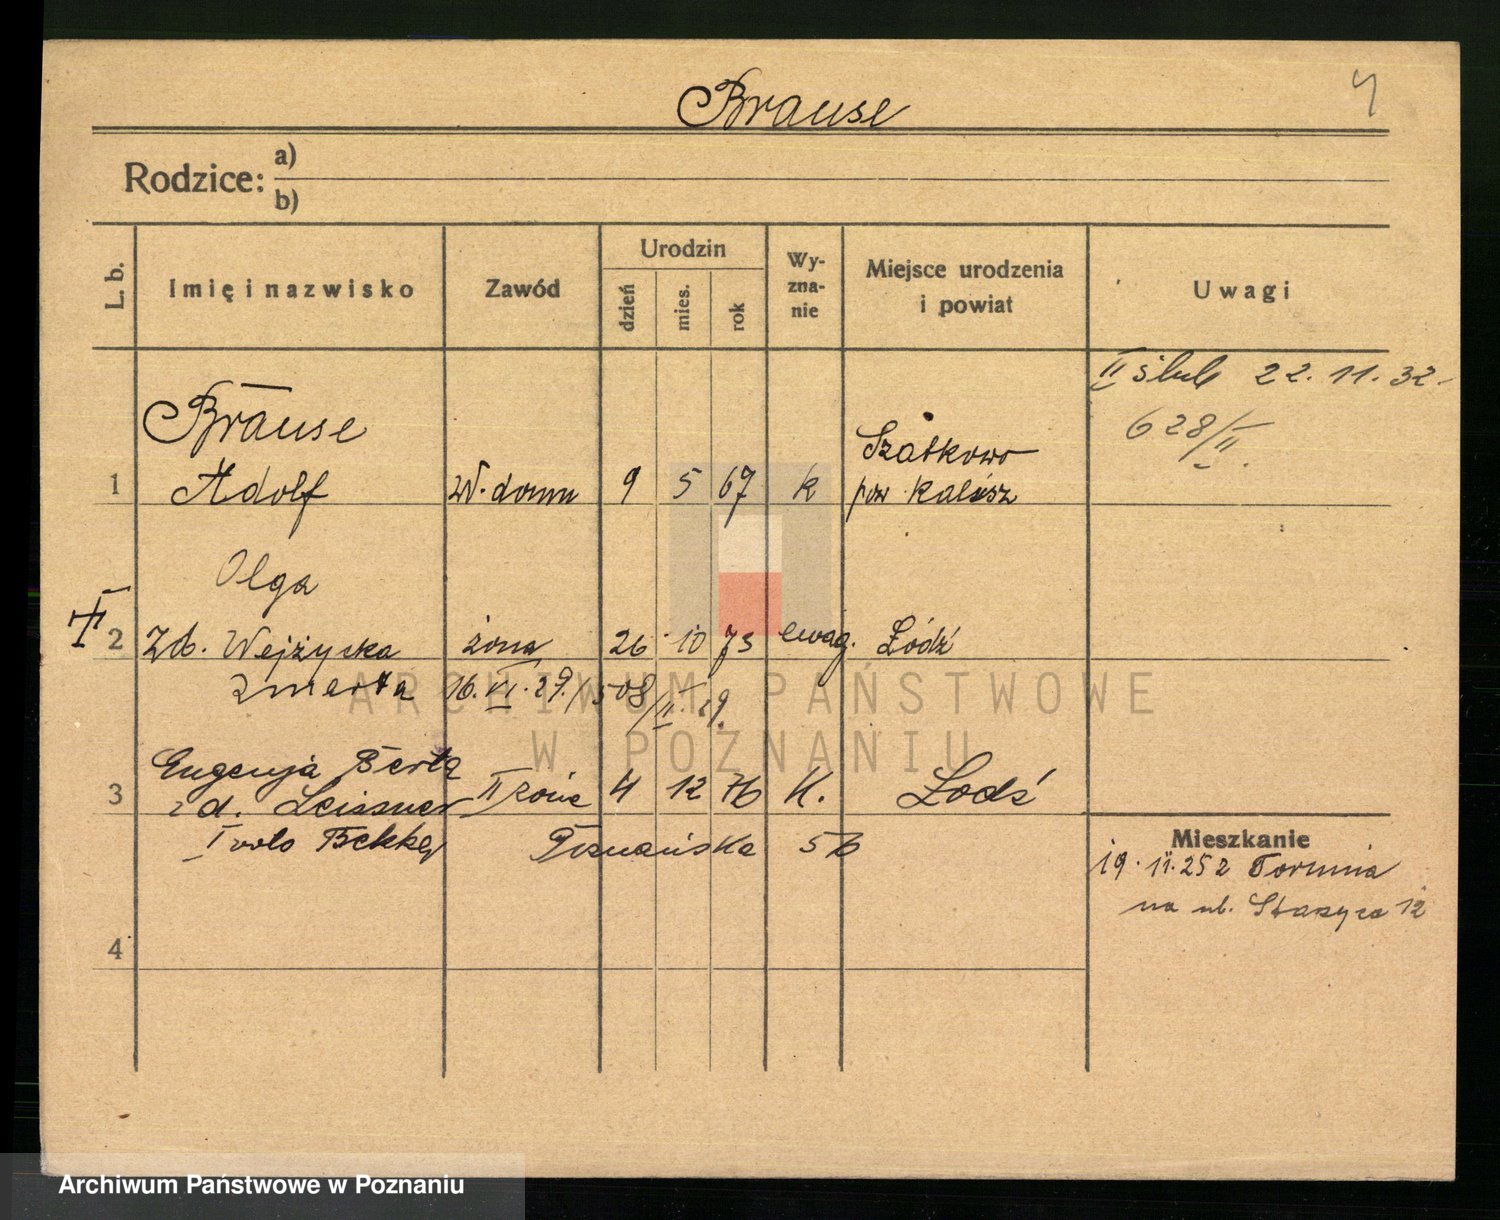 Brause
Rodzice: a)
b)
L. b. Imię i nazwisko Zawód Urodzin dzień mies. rok Wy-zna-nie Miejsce urodzenia i powiat Uwagi
II ślub 22.11.32
628/II.
Brause Szatkowo
1 Adolf W. domu 9 5 67 k pow Kalisz
Olga
2 Zd. Wejżycka żona 26 10 73 ewag. Łódź
zmarła 16.VI.29./508/II.29.
ARCHIWUM PAŃSTWOWE
W POZNANIU
Eugenja Berta
3 zd. Leissner II żona 4 12 76 K. Łodź
I voto Bekker Poznańska 56
Mieszkanie
19.11.25 z Torunia
na ul. Staszyca 12
4
Archiwum Państwowe w Poznaniu